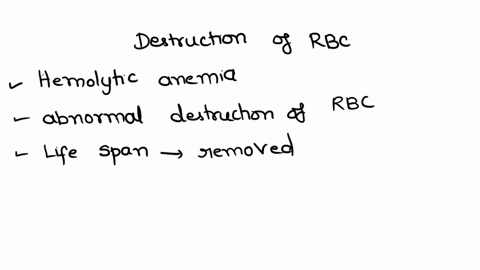 Destruction of RBC
Hemolytic anemia
abnormal destruction of RBC
Life span → removed